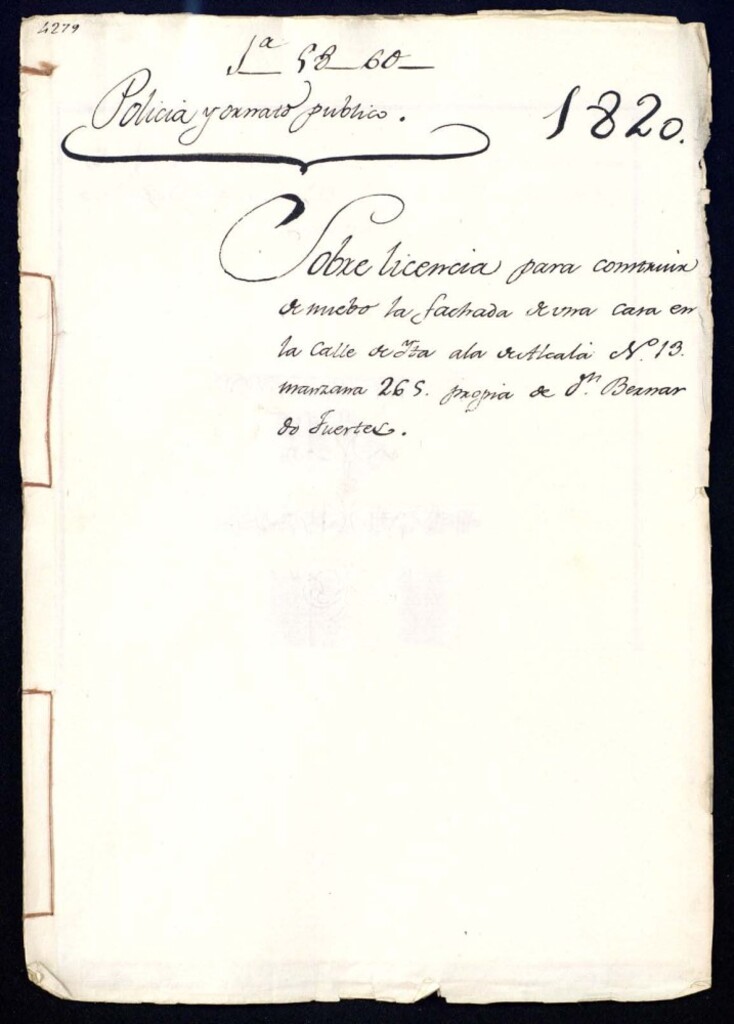 4279
1ª 58 60
Policia y ornato publico.
1820.
Sobre licencia para construir
de nuebo la fachada de una casa en
la Calle de Jta ala de Alcalá N.º 13.
manzana 265. propia de Dn. Bernar
do Fuertes.